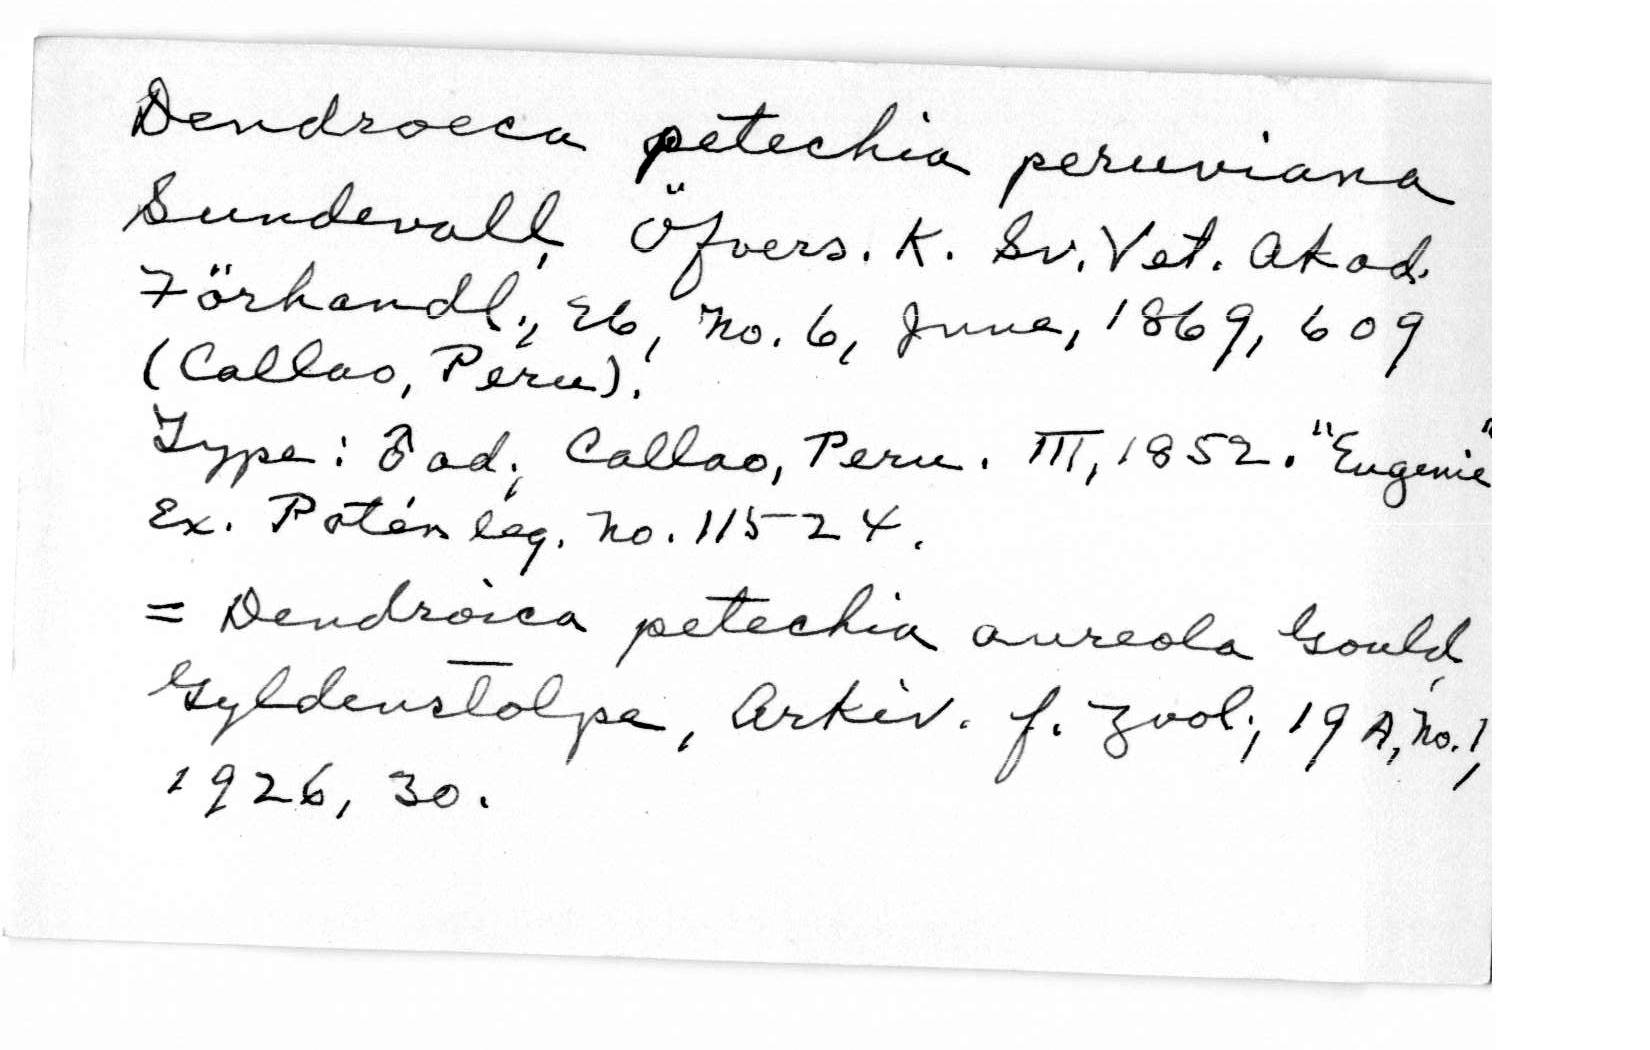 Dendroeca petechia peruviana
Sundevall, Öfvers. K. Sv. Vet. Akad.
Förhandl., 26, No. 6, June, 1869, 609
(Callao, Peru).
Type: ♂ ad., Callao, Peru. III, 1852. "Eugenie"
Ex. Potén leg. No. 11524.
= Dendroica petechia aureola Gould,
Gyldenstolpe, Arkiv. f. Zool., 19 A, No. 1,
1926, 30.